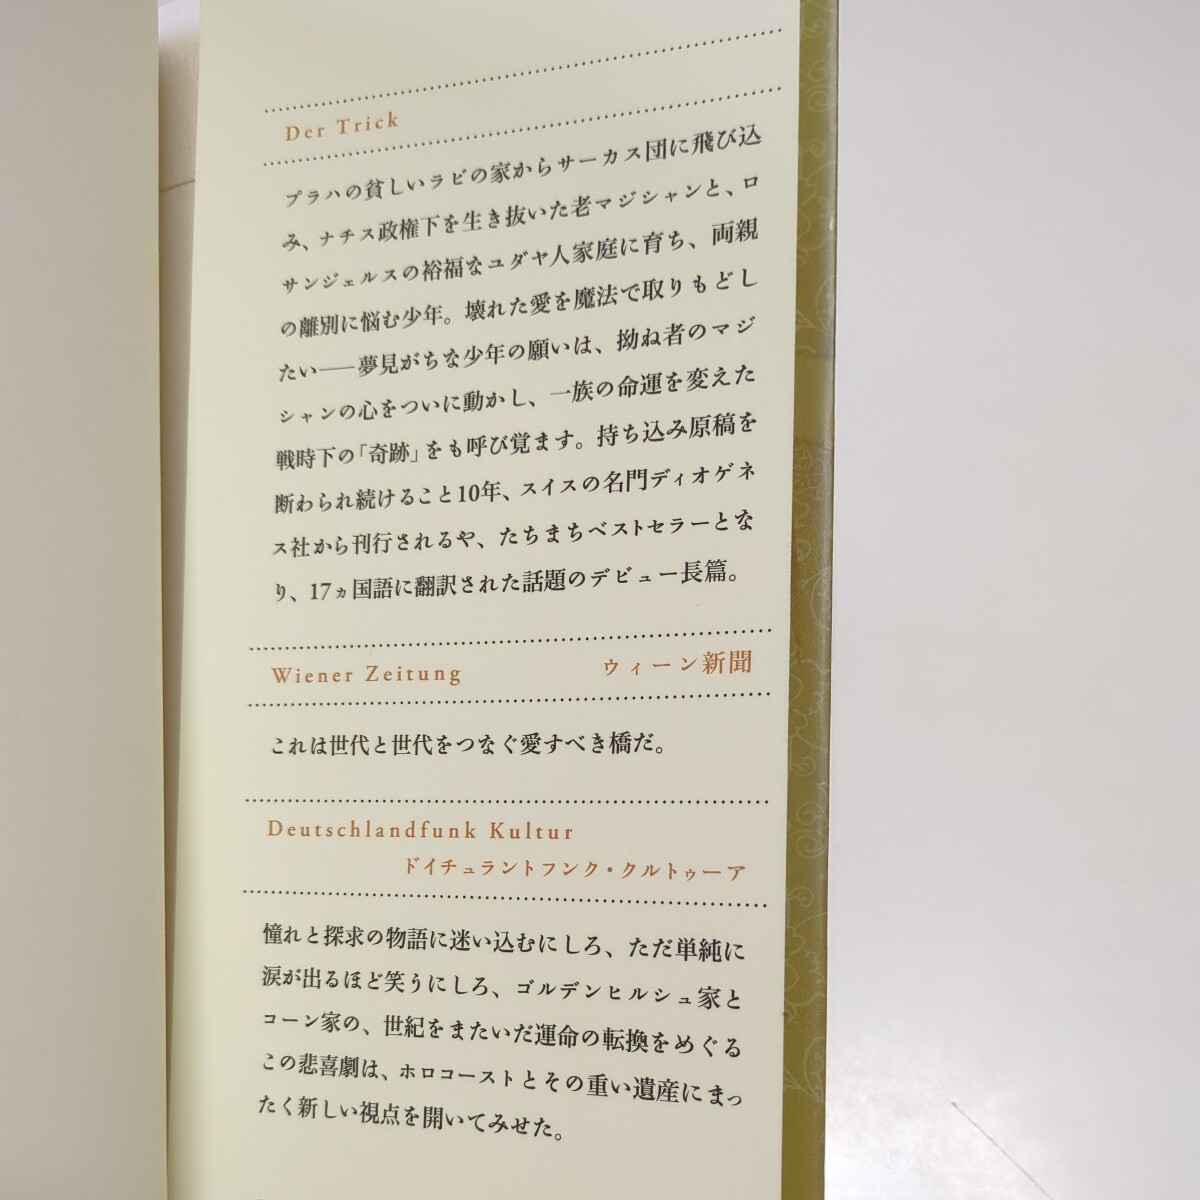 Der Trick
プラハの貧しいラビの家からサーカス団に飛び込
み、ナチス政権下を生き抜いた老マジシャンと、ロ
サンジェルスの裕福なユダヤ人家庭に育ち、両親
の離別に悩む少年。壊れた愛を魔法で取りもどし
たい──夢見がちな少年の願いは、拗ね者のマジ
シャンの心をついに動かし、一族の命運を変えた
戦時下の「奇跡」をも呼び覚ます。持ち込み原稿を
断わられ続けること10年、スイスの名門ディオゲネ
ス社から刊行されるや、たちまちベストセラーとな
り、17ヵ国語に翻訳された話題のデビュー長篇。
Wiener Zeitung ウィーン新聞
これは世代と世代をつなぐ愛すべき橋だ。
Deutschlandfunk Kultur
ドイチュラントフンク・クルトゥーア
憧れと探求の物語に迷い込むにしろ、ただ単純に
涙が出るほど笑うにしろ、ゴルデンヒルシュ家と
コーン家の、世紀をまたいだ運命の転換をめぐる
この悲喜劇は、ホロコーストとその重い遺産にまっ
たく新しい視点を開いてみせた。